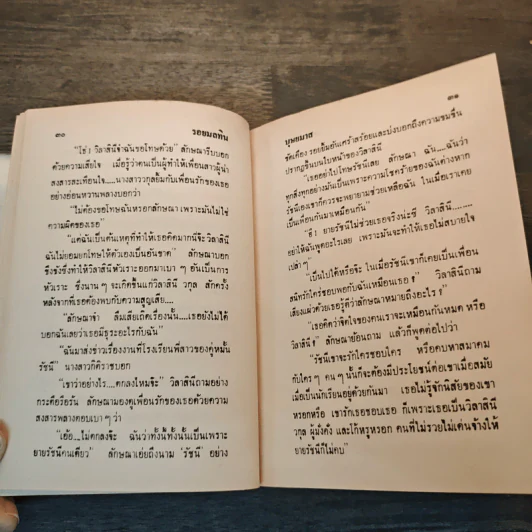 ๓๐ รอยมลทิน
"โช่! วิลาสินีจ๋าฉันขอโทษด้วย" ลักษณารีบบอก
ด้วยความเสียใจ เมื่อรู้ว่าตนเป็นผู้ทำให้เพื่อนสาวผู้น่า
สงสารสะเทือนใจ.....นางสาววกุลยิ้มกับเพื่อนรักของเธอ
อย่างอ่อนหวานพลางบอกว่า
"ไม่ต้องขอโทษฉันหรอกลักษณา เพราะมันไม่ใช่
ความผิดของเธอ"
"แต่ฉันเป็นต้นเหตุที่ทำให้เธอคิดมากนี่จ๊ะ วิลาสินี
ฉันไม่ยอมยกโทษให้ตัวเองเป็นอันขาด" ลักษณาบอก
ขึงขังซึ่งทำให้วิลาสินีหัวเราะออกมาเบา ๆ อันเป็นการ
หัวเราะ ซึ่งนาน ๆ จะเกิดขึ้นแก่วิลาสินี วกุล สักครั้ง
หลังจากที่เธอต้องพบกับความสูญเสีย....
"ลักษณาจ๋า ลืมเสียเถิดเรื่องนั้น.....เธอยังไม่ได้
บอกฉันเลยว่าเธอมีธุระอะไรกับฉัน"
"ฉันมาส่งข่าวเรื่องงานที่โรงเรียนพี่สาวของคู่หมั้น
รัชนี" นางสาวกีราชบอก
"เขาว่าอย่างไร....ตกลงไหมจ๊ะ" วิลาสินีถามอย่าง
กระตือรือร้น ลักษณามองดูเพื่อนรักของเธอด้วยความ
สงสารพลางตอบเบา ๆ ว่า
"เอ้อ....ไม่ตกลงจ๊ะ ฉันว่าทั้งนี้ทั้งนั้นเป็นเพราะ
ยายรัชนีคนเดียว" ลักษณาเอ่ยถึงนาม "รัชนี" อย่าง
บุษยมาส ๓๑
ขัดเคือง รอยยิ้มอันเศร้าสร้อยและบ่งบอกถึงความขมขื่น
ปรากฏขึ้นบนใบหน้าของวิลาสินี
"เธออย่าไปโทษรัชนีเลย ลักษณา ฉัน....ฉันว่า
ทุกสิ่งทุกอย่างมันเป็นเพราะความโชคร้ายของฉันต่างหาก
รัชนีเองเขาก็ควรจะพยายามช่วยเหลือฉัน ในเมื่อเราเคย
เป็นเพื่อนกันมาเหมือนกัน"
"ฮึ! ยายรัชนีไม่ช่วยเธอจริงน่ะซี วิลาสินี......
อย่าให้ฉันพูดอะไรเลย เพราะมันจะทำให้เธอไม่สบายใจ
เปล่า ๆ"
"เป็นไปได้หรือจ๊ะ ในเมื่อรัชนีเขาก็เคยเป็นเพื่อน
สนิทรักใคร่ชอบพอกับฉันเหมือนเธอ" วิลาสินีถาม
เสียงแผ่วด้วยเธอรู้ดีว่าลักษณาหมายถึงอะไร
"เธอคิดว่าจิตใจของคนเราจะเหมือนกันหมด หรือ
วิลาสินี" ลักษณาย้อนถาม แล้วก็พูดต่อไปว่า
"รัชนีเขาจะรักใครชอบใคร หรือคบหาสมาคม
กับใคร ๆ คน ๆ นั้นก็จะต้องมีประโยชน์ต่อเขาเมื่อสมัย
เมื่อเป็นนักเรียนอยู่ด้วยกันมา เธอไม่รู้จักนิสัยของเขา
หรอกหรือ เขารักเธอชอบเธอ ก็เพราะเธอเป็นวิลาสินี
วกุล ผู้มั่งคั่ง และโก้หรูหรอก คนที่ไม่รวยไม่เด่นจ้างให้
ยายรัชนีก็ไม่คบ"